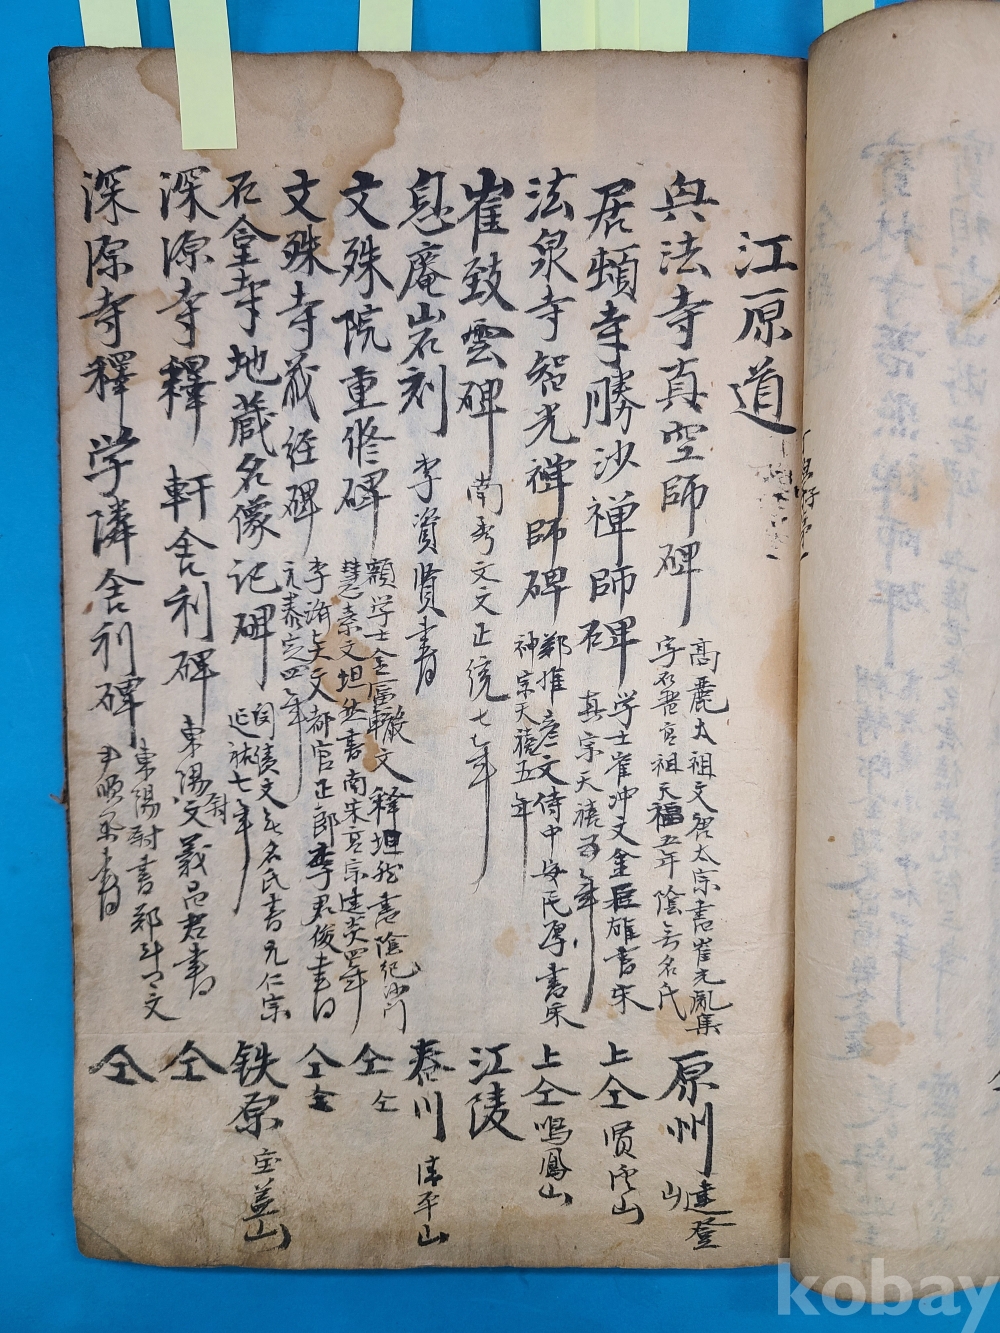 江原道
興法寺真空師碑 高麗太祖文唐太宗書崔光胤集
字石晋高祖天福五年陰無名氏 原州 建登山
居頓寺勝沙禅師碑 学士崔冲文金巨雄書宋
真宗天禧 年 上仝 賢溪山
法泉寺智光禅師碑 鄭惟産文侍中安民厚書宋
神宗天禧五年 上仝 鳴鳳山
崔致雲碑 南秀文文正統七年 江陵
息庵岩刻 李資賢書 春川 清平山
文殊院重修碑 額学士金富轍文釋坦然書陰紀沙门
慧素文坦然書南宋高宗建炎四年 仝 仝
文殊寺藏経碑 李济贤文都官正郎李君俊書
元泰定四年 仝 仝
石臺寺地蔵名像记碑 闵漬文無名氏書元仁宗
延祐七年 铁原 宝盖山
深源寺釋 軒舍利碑 東陽尉文義昌君書 仝
深源寺釋学隣舍利碑 東陽尉書鄭斗 文
尹順 書 仝
kobay